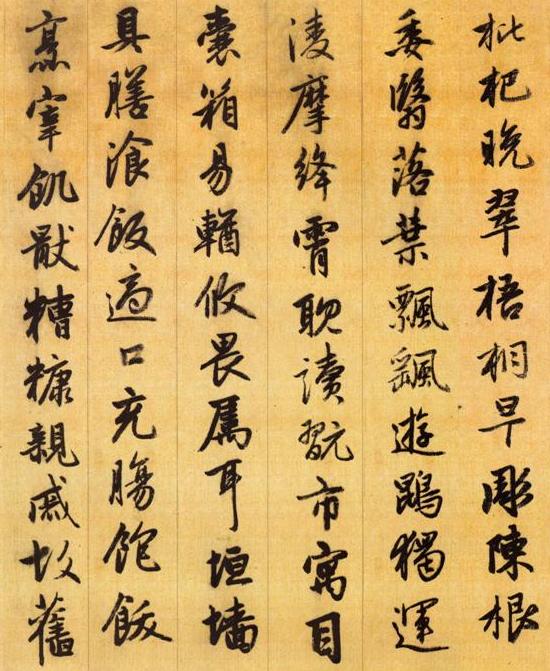 枇杷晚翠梧桐早彫陳根
委翳落葉飄飖遊鵾獨運
淩摩絳霄耽讀翫市寓目
囊箱易輶攸畏属耳垣墙
具膳湌飯適口充膓飽飫
烹宰飢猒糟糠親戚故舊